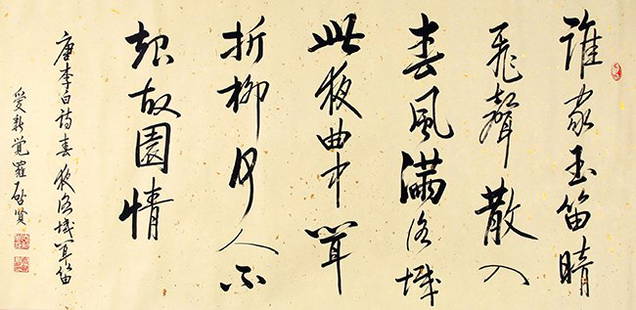 誰家玉笛晴
飛聲散入
春風滿洛城
此夜曲中聞
折柳何人不
起故園情
唐李白詩春夜洛城聞笛
愛新覺羅啟賢